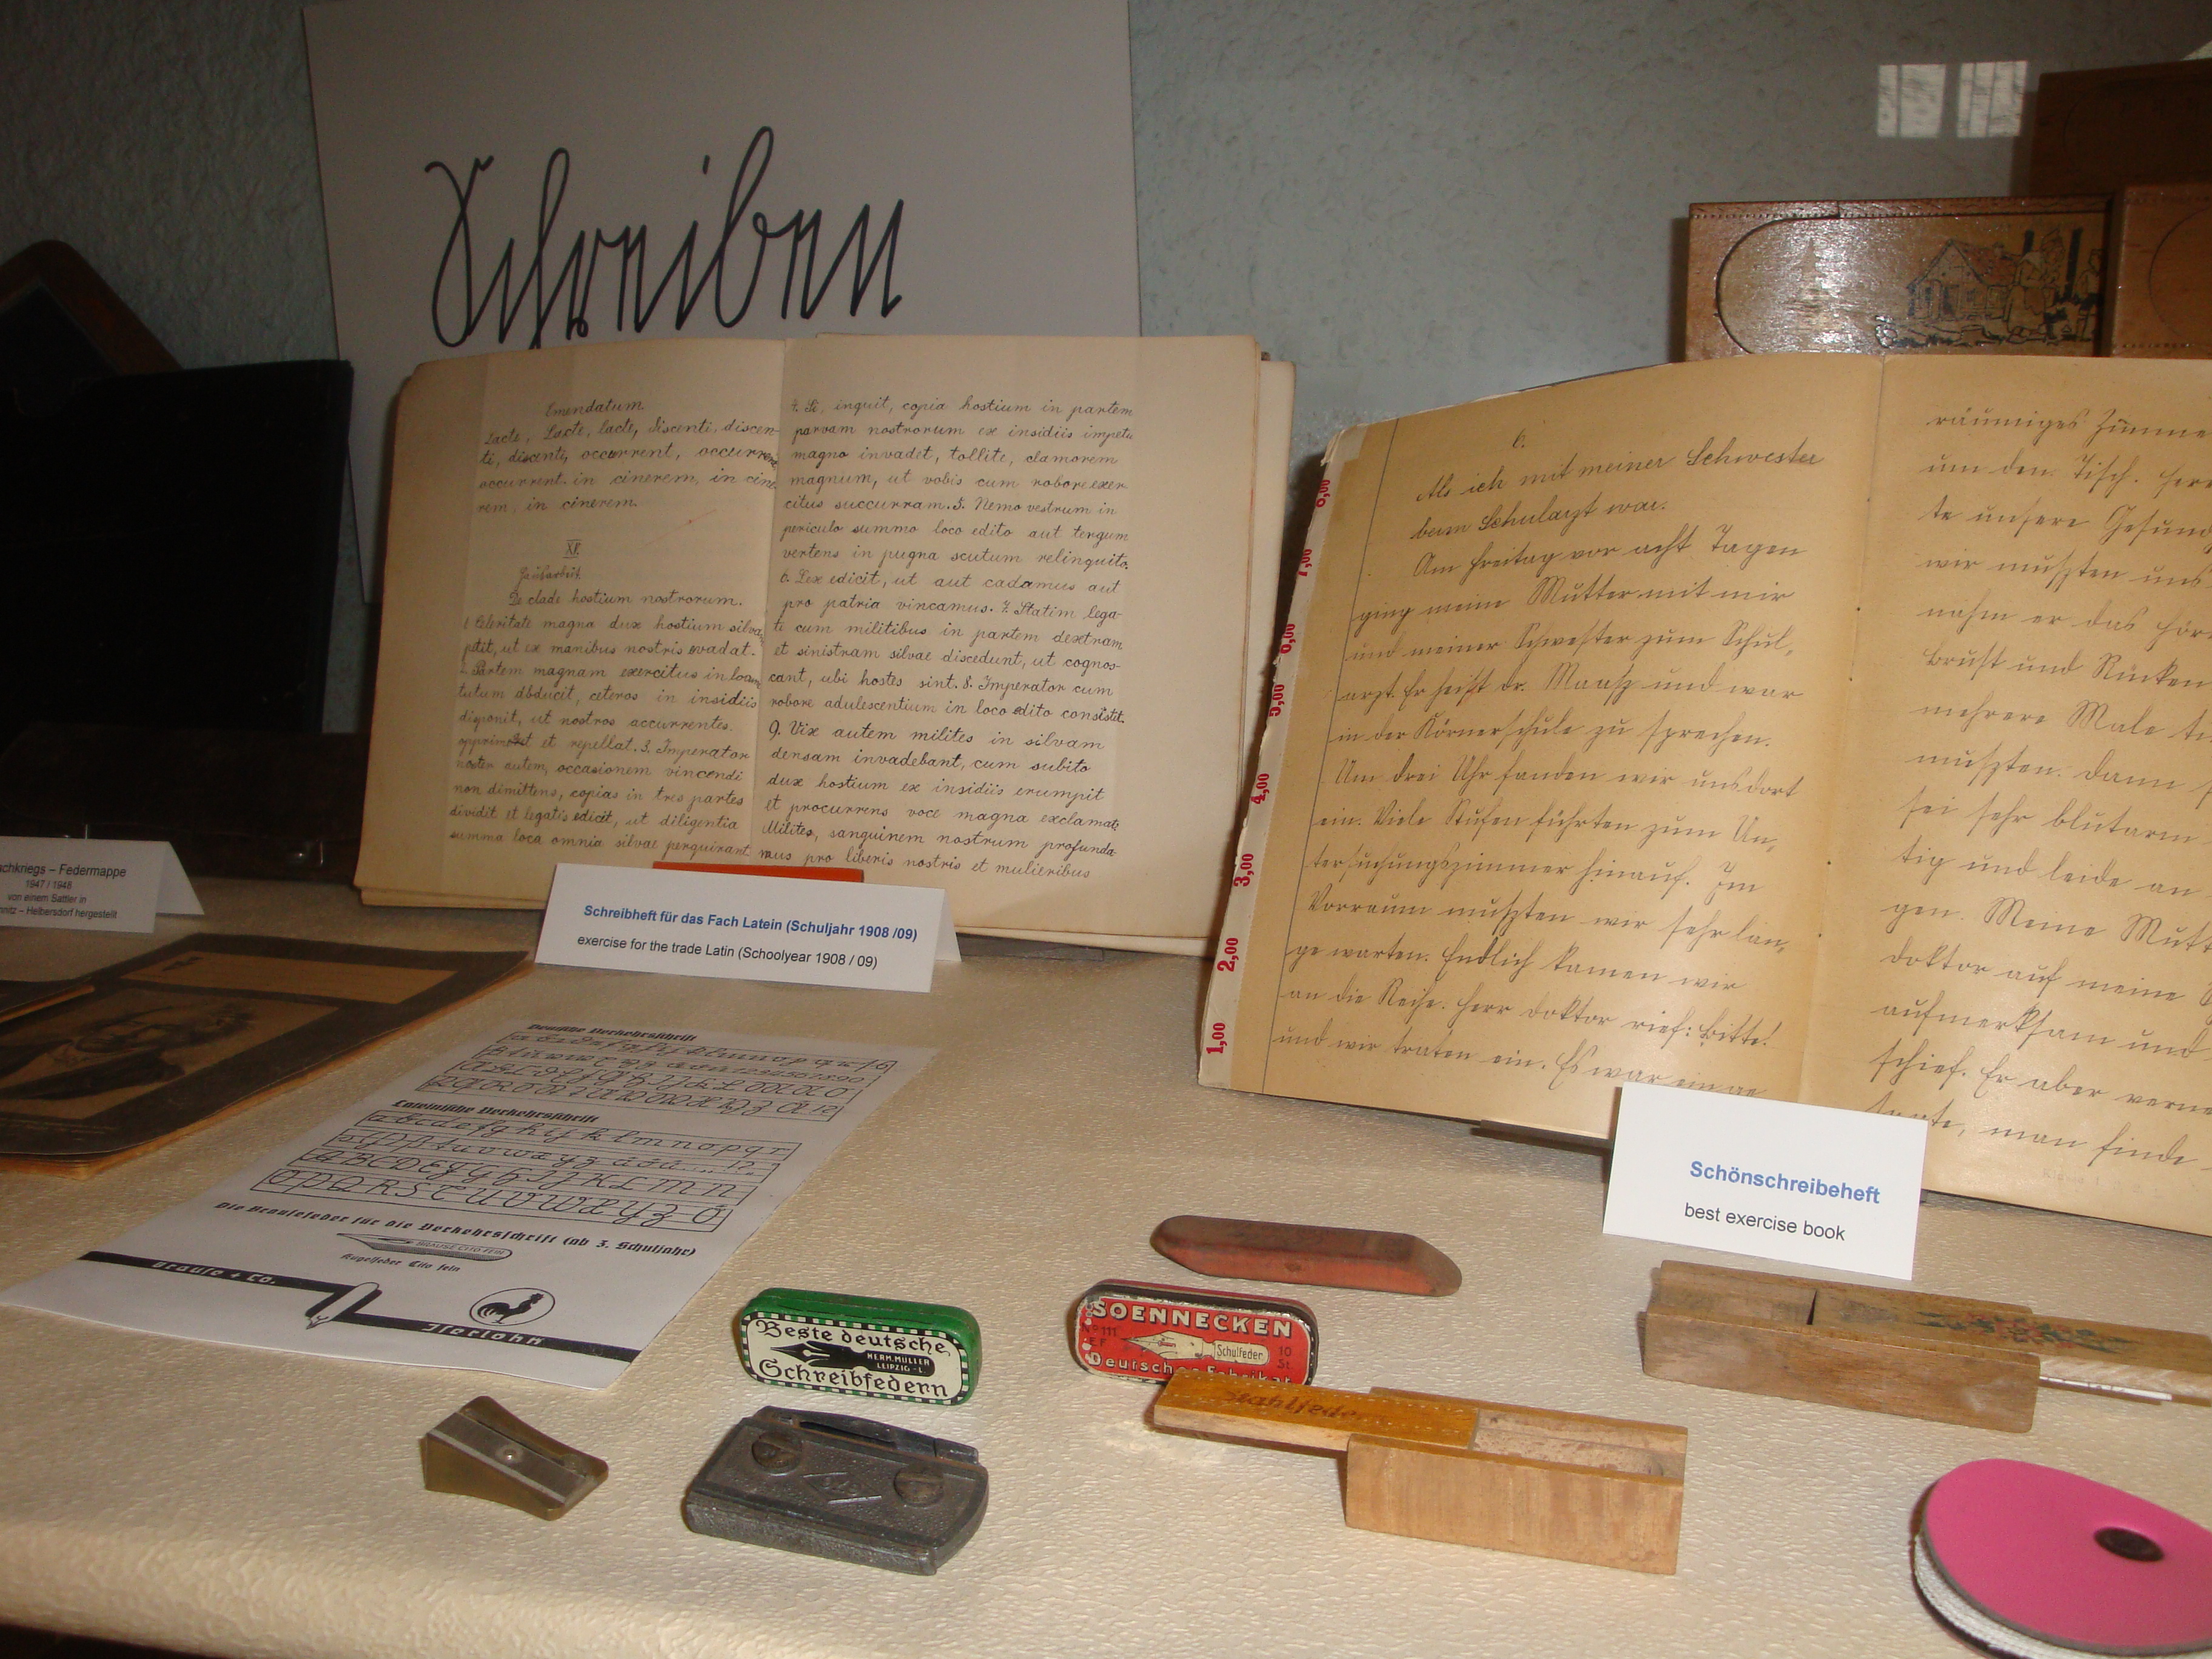 Schreiben
Emendatum.
Lacte, Lacte, lacte, discenti, discen-
ti, discenti, occurrent, occurrent
occurrent. in cinerem, in cine-
rem, in cinerem.
XI.
Hausarbeit.
De clade hostium nostrorum.
1. Celeritate magna dux hostium silvam
petit, ut ex manibus nostris evadat.
2. Partem magnam exercitus in locum
tutum abducit, ceteros in insidiis
disponit, ut nostros accurrentes
opprimat et repellat. 3. Imperator
noster autem, occasionem vincendi
non dimittens, copias in tres partes
dividit et legatis edicit, ut diligentia
summa loca omnia silvae perquirant
4. Si, inquit, copia hostium in partem
parvam nostrorum ex insidiis impetu
magno invadet, tollite, clamorem
magnum, ut vobis cum robore exer-
citus succurram. 5. Nemo vestrum in
periculo summo loco edito aut tergum
vertens in pugna scutum relinquito.
6. Lex edicit, ut aut cadamus aut
pro patria vincamus. 7. Statim lega-
ti cum militibus in partem dextram
et sinistram silvae discedunt, ut cognos-
cant, ubi hostes sint. 8. Imperator cum
robore adulescentium in loco edito consistit.
9. Vix autem milites in silvam
densam invadebant, cum subito
dux hostium ex insidiis erumpit
et procurrens voce magna exclamat:
Milites, sanguinem nostrum profunda-
mus pro liberis nostris et mulieribus
6.
Als ich mit meiner Schwester
beim Schularzt war.
Am Freitag vor acht Tagen
ging meine Mutter mit mir
und meiner Schwester zum Schul-
arzt. Er heißt Dr. Maasz und war
in der Körnerschule zu sprechen.
Um drei Uhr fanden wir uns dort
ein. Viele Stufen führten zum Un-
tersuchungszimmer hinauf. Im
Vorraum muszten wir sehr lan-
ge warten. Endlich kamen wir
an die Reihe. Herr Doktor rief: Bitte!
und wir traten ein. Es war ein ge
räumiges Zimme
um den Tisch. Herr
te unsere Gesund
wir muszten uns
nahm er das Hör
Brust und Rücken
mehrere Male
muszten. Dann
sei sehr blutarm
tig und leide an
gen. Meine Mutt
Doktor auf meine
aufmerksam und
schief. Er aber verne
te, man finde
8,00
7,00
6,00
5,00
4,00
3,00
2,00
1,00
chkriegs – Federmappe
1947 / 1948
von einem Sattler in
nitz – Helbersdorf hergestellt
Schreibheft für das Fach Latein (Schuljahr 1908 /09)
exercise for the trade Latin (Schoolyear 1908 / 09)
Schönschreibeheft
best exercise book
Deutsche Verkehrsschrift
Lateinische Verkehrsschrift
a b c d e f g h i j k l m n o p q r
A B C D E F G H I J K L M N
O P Q R S T U V W X Y Z Ö
Die Brausefeder für die Verkehrsschrift (ab 3. Schuljahr)
BRAUSE CITO FEIN
Kugelfeder Cito fein
Brause + Co.
Iserlohn
Beste deutsche
HERM. MÜLLER
LEIPZIG
Schreibfedern
SOENNECKEN
Nº 111
EF
Schulfeder
10
St.
Deutsches Fabrikat
Stahlfedern